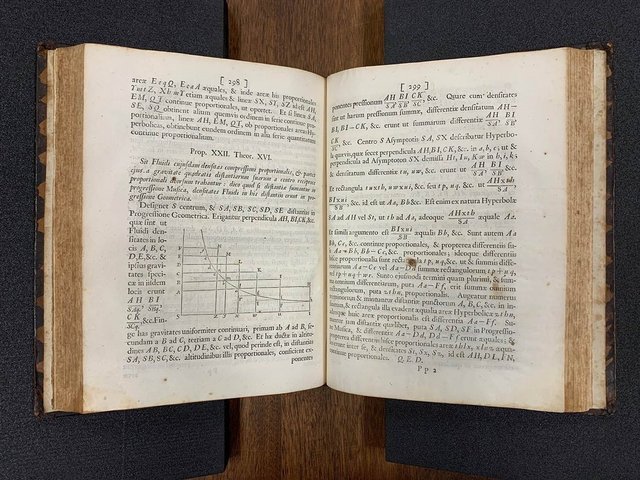 [ 298 ]
areæ EeqQ, EeaA æquales, & inde areæ his proportionales
TutZ, XuwT etiam æquales & lineæ SX, ST, SZ id est AH,
EM, QT continue proportionales, ut oportet. Et si lineæ SA,
SE, SQ obtinent alium quemvis ordinem in serie continue pro-
portionalium, lineæ AH, EM, QT, ob proportionales areas Hy-
perbolicas, obtinebunt eundem ordinem in alia serie quantitatum
continue proportionalium.
Prop. XXII. Theor. XVI.
Sit Fluidi cujusdam densitas compressioni proportionalis, & partes
ejus a gravitate quadratis distantiarum suarum a centro reciproce
proportionali deorsum trahantur: dico quod si distantiæ sumantur in
progressione Musica, densitates Fluidi in his distantiis erunt in pro-
gressione Geometrica.
Designet S centrum, & SA, SB, SC, SD, SE distantias in
Progressione Geometrica. Erigantur perpendicula AH, BI, CK &c.
quæ sint ut
Fluidi den-
sitates in lo-
cis A, B, C,
D, E, &c. &
ipsius gravi-
tates speci-
ficæ in iisdem
locis erunt
AH BI
SAq. SBq.
CK
SCq. &c. Fin-
ge has gravitates uniformiter continuari, primam ab A ad B, se-
cundam a B ad C, tertiam a C ad D, &c. Et hæ ductæ in alti-
tudines AB, BC, CD, DE, &c. vel, quod perinde est, in distantias
SA, SB, SC, &c. altitudinibus illis proportionales, conficient ex-
ponentes
[ 299 ]
ponentes pressionum AH BI CK &c. Quare cum densitates
SA SB SC
sint ut harum pressionum summæ, differentiæ densitatum AH–
BI, BI–CK, &c. erunt ut summarum differentiæ AH BI
SA SB
CK &c. Centro S Asymptotis SA, SX describatur Hyperbo-
SC
la quævis, quæ secet perpendicula AH, BI, CK, &c. in a, b, c, ut &
perpendicula ad Asymptoton SX demissa Ht, Iu, Kw in h, i, k;
& densitatum differentiæ tu, uw, &c. erunt ut AH BI &c.
SA SB
Et rectangula tu×th, uw×ui, &c. seu tp, uq, &c. ut AH×th
SA
BI×ui &c. id est ut Aa, Bb &c. Est enim ex natura Hyperbolæ
SB
SA ad AH vel St, ut th ad Aa, adeoque AH×th æquale Aa.
SA
Et simili argumento est BI×ui æqualis Bb, &c. Sunt autem Aa
SB
Bb, Cc, &c. continue proportionales, & propterea differentiis su-
is Aa–Bb, Bb–Cc, &c. proportionales; ideoque differentiis
hisce proportionalia sunt rectangula tp, uq, &c. ut & summis diffe-
rentiarum Aa–Cc vel Aa–Dd summæ rectangulorum tp+uq,
vel tp+uq+wr. Sunto ejusmodi termini quam plurimi, & sum-
ma omnium differentiarum, puta Aa–Ff, erit summæ omnium
rectangulorum, puta zthn, proportionalis. Augeatur numerus
terminorum & minuantur distantiæ punctorum A, B, C, &c. in in-
finitum, & rectangula illa evadent æqualia areæ Hyperbolicæ zthn,
adeoque huic areæ proportionalis est differentia Aa–Ff. Su-
mantur jam distantiæ quælibet, puta SA, SD, SF in Progressio-
ne Musica, & differentiæ Aa–Dd, Dd–Ff erunt æquales; &
propterea differentiis hisce proportionales areæ thlx, xlnz æqua-
les erunt inter se, & densitates St, Sx, Sz, id est AH, DL, FN,
continue proportionales. Q. E. D.
Pp 2